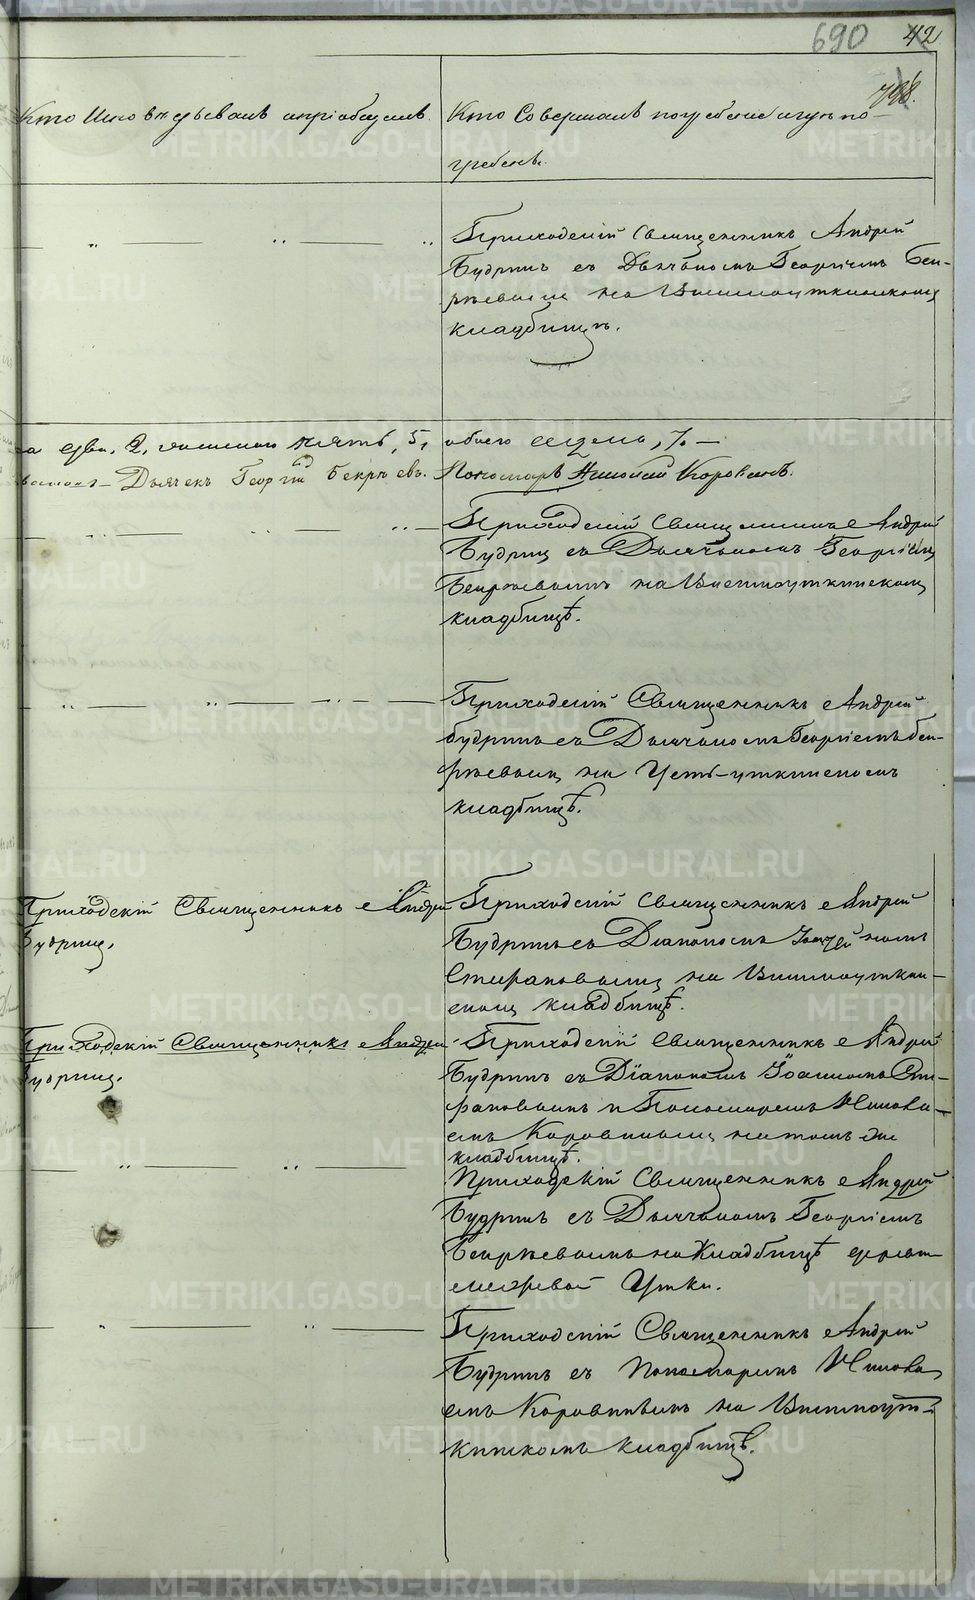 690 42
Кто Исповѣдывалъ и пріобщалъ. Кто Совершалъ погребеніе и гдѣ по-
гребенъ.
Приходскій Священникъ Андрей
Будринъ съ Дьячкомъ Георгіемъ Бек-
рѣевымъ на Висимоуткинскомъ
кладбищѣ.
два, 2, женска пять, 5, обоего седмь, 7. —
Дьячекъ Георгій Бекрѣевъ. Пономарь Николай Коровинъ.
Приходскій Священникъ Андрей
Будринъ съ Дьячкомъ Георгіемъ
Бекрѣевымъ на Висимоуткинскомъ
кладбищѣ.
Приходскій Священникъ Андрей
Будринъ съ Дьячкомъ Георгіемъ Бек-
рѣевымъ на Усть-уткинскомъ
кладбищѣ.
Приходскій Священникъ Андрей
Будринъ.
Приходскій Священникъ Андрей
Будринъ съ Діакономъ
на Висимоуткин-
скомъ кладбищѣ.
Приходскій Священникъ Андрей
Будринъ.
Приходскій Священникъ Андрей
Будринъ съ Діакономъ Іоанномъ
и Пономаремъ Никола-
емъ Коровинымъ на томъ же
кладбищѣ.
Приходскій Священникъ Андрей
Будринъ съ Дьячкомъ Георгіемъ
Бекрѣевымъ на Кладбищѣ
межевой Утки.
Приходскій Священникъ Андрей
Будринъ съ Пономаремъ Никола
емъ Коровинымъ на Висимоут-
кинскомъ кладбищѣ.
METRIKI.GASO-URAL.RU